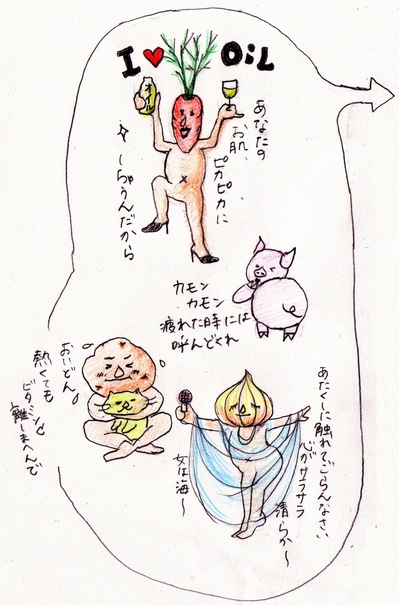 I ♥ OiL
あなたの
お肌、
ピカピカに
しちゃうんだから
カモン
カモン
疲れた時には
呼んどくれ
おいどん
熱くても
ビタミンと
離しまへんで
あたくしに触れてごらんなさい
心がサラサラ
清らか〜
女は海〜